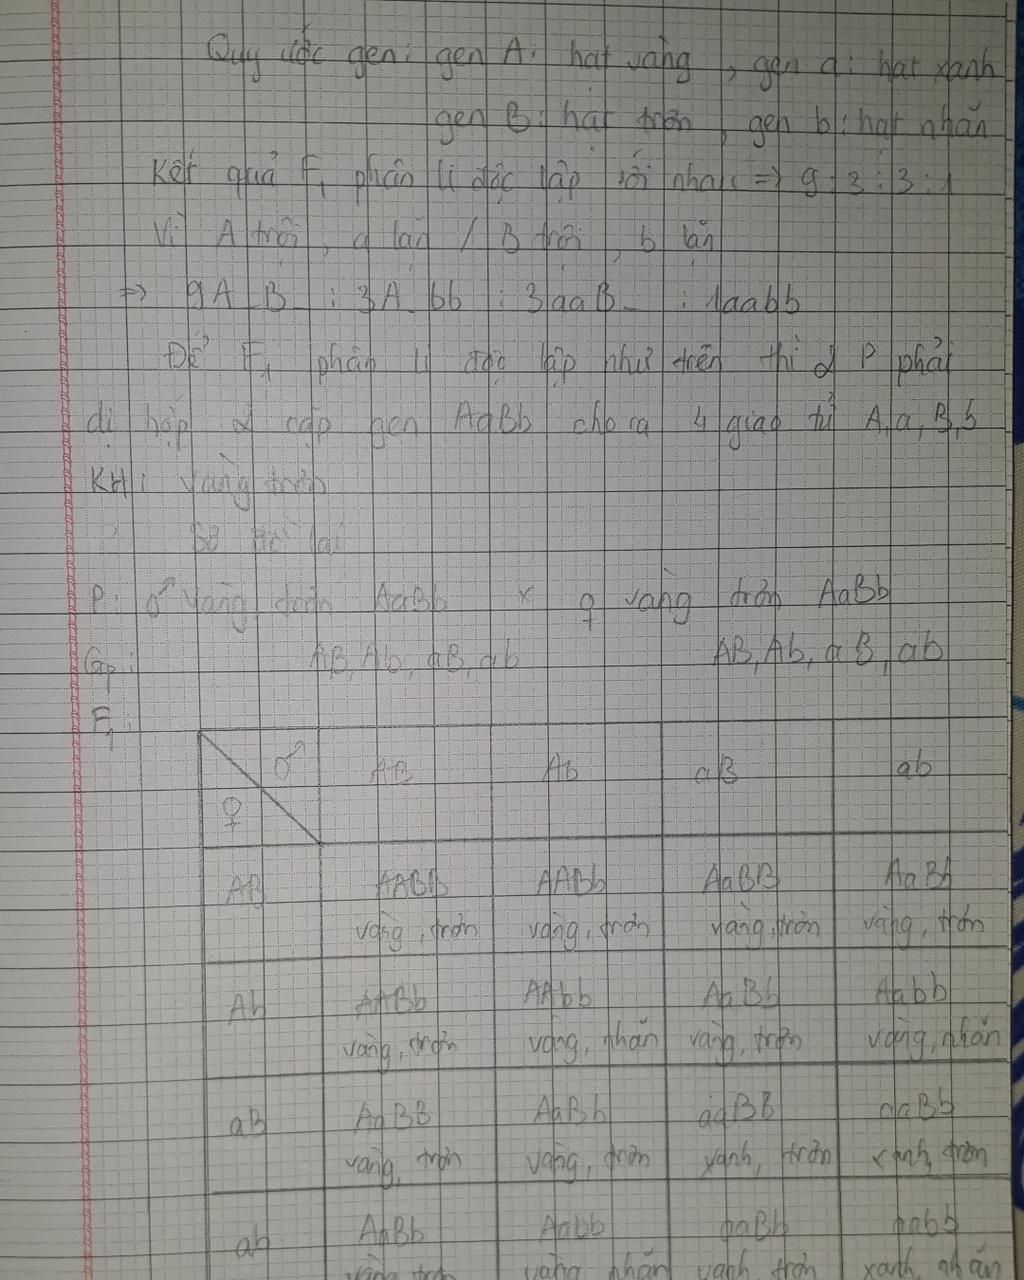 Quy ước gen: gen A: hạt vàng, gen a: hạt xanh
gen B: hạt trơn, gen b: hạt nhăn
Kết quả F1 phân li độc lập với nhau => 9:3:3:1
Vì A trội, a lặn / B trội, b lặn
=> 9A_B_ : 3A_bb : 3aaB_ : 1aabb
Để F1 phân li độc lập như trên thì 2 P phải
dị hợp 2 cặp gen AaBb cho ra 4 giao tử A, a, B, b
KH: vàng trơn
Sơ đồ lai
P: ♂ vàng, trơn AaBb x ♀ vàng trơn AaBb
Gp: AB, Ab, aB, ab AB, Ab, aB, ab
F1:
♂ AB Ab aB ab
♀
AB AABB AABb AaBB AaBb
vàng, trơn vàng, trơn vàng, trơn vàng, trơn
Ab AABb AAbb AaBb Aabb
vàng, trơn vàng, nhăn vàng, trơn vàng, nhăn
aB AaBB AaBb aaBB aaBb
vàng, trơn vàng, trơn xanh, trơn xanh, trơn
ab AaBb Aabb aaBb aabb
vàng trơn vàng nhăn xanh trơn xanh, nhăn